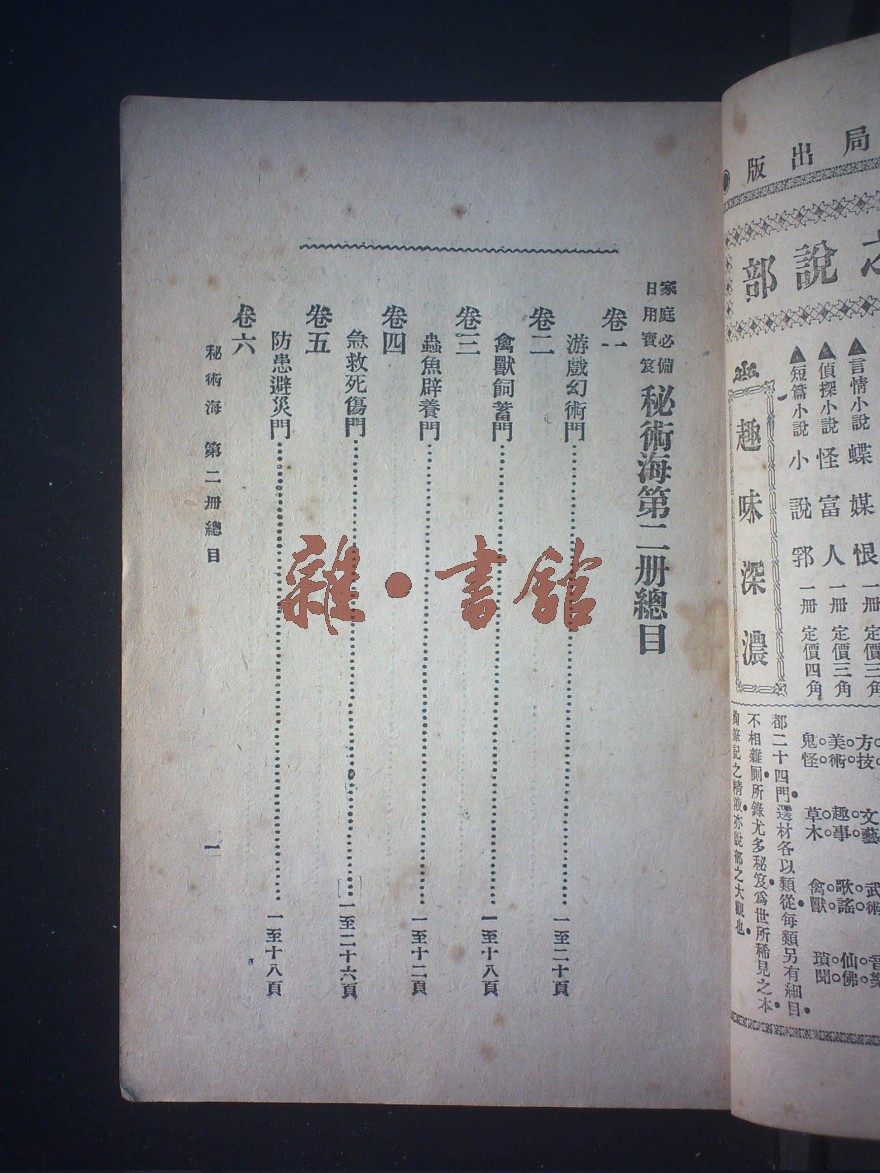 局出版
之說部
▲言情小說 蝶媒恨 一册 定價三角
▲偵探小說 怪富人 一册 定價三角
▲短篇小說 小說郛 一册 定價四角
趣味深濃
方技 文藝 武術 音樂
美術 趣事 歌謠 仙佛
鬼怪 草木 禽獸 瑣聞
都二十四門選材各以類從每類另有細目
不相雜厠所錄尤多秘笈爲世所稀見之本
筆記之精液亦說部之大觀也
家庭必備
日用寶笈
秘術海第二册總目
卷一
游戲幻術門 一至二十頁
卷二
禽獸飼蓄門 一至十八頁
卷三
蟲魚辟養門 一至十二頁
卷四
急救死傷門 一至二十六頁
卷五
防患避災門 一至十八頁
卷六
秘術海 第二册總目 一
雜·書館